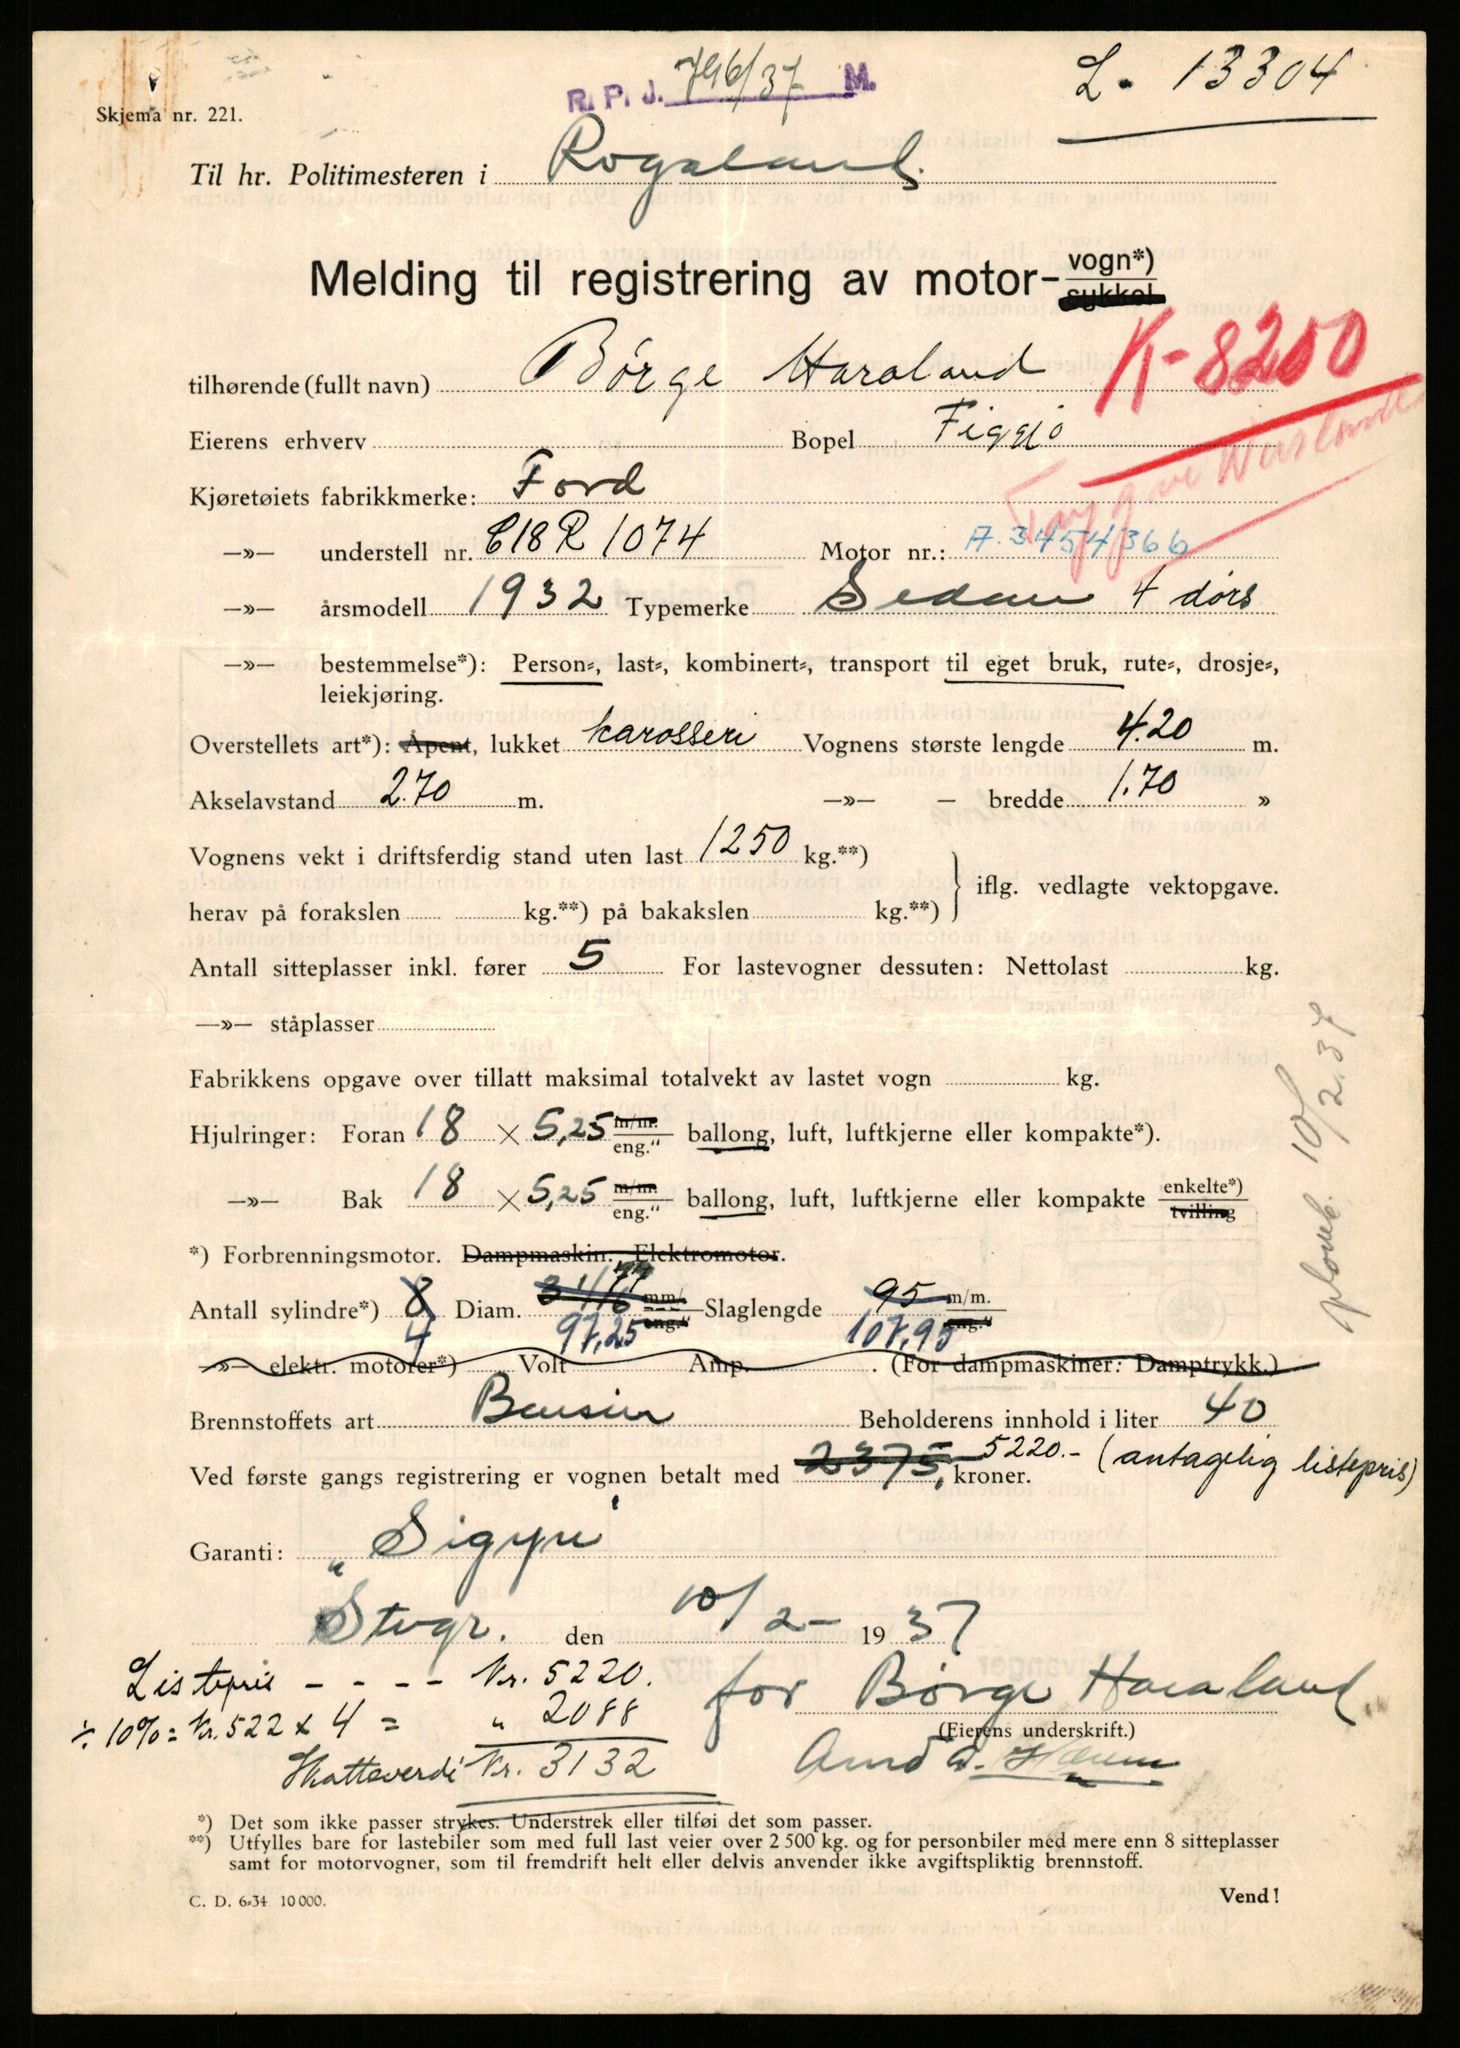 R. P. J. 796/37 M.
L. 13304
Skjema nr. 221.
Til hr. Politimesteren i Rogaland.
Melding til registrering av motor-vogn*)
sykkel
K-8250
tilhørende (fullt navn) Børge Haraland
Eierens erhverv Bopel Figgjo
Kjøretøiets fabrikkmerke: Ford
—»— understell nr. C18R 1074 Motor nr.: A. 3454366
—»— årsmodell 1932 Typemerke Sedan 4 dørs
—»— bestemmelse*): Person-, last-, kombinert-, transport til eget bruk, rute-, drosje-,
leiekjøring.
Overstellets art*): Åpent, lukket karosseri Vognens største lengde 4.20 m.
Akselavstand 2.70 m. —»— — bredde 1.70 »
Vognens vekt i driftsferdig stand uten last 1250 kg.**)
herav på forakslen kg.**) på bakakslen kg.**) iflg. vedlagte vektopgave.
Antall sitteplasser inkl. fører 5 For lastevogner dessuten: Nettolast kg.
—»— ståplasser
Fabrikkens opgave over tillatt maksimal totalvekt av lastet vogn kg.
Hjulringer: Foran 18 × 5,25 m/m. eng." ballong, luft, luftkjerne eller kompakte*).
—»— Bak 18 × 5,25 m/m. eng." ballong, luft, luftkjerne eller kompakte enkelte*) tvilling
plomb. 10/2.37
*) Forbrenningsmotor. Dampmaskin. Elektromotor.
Antall sylindre*) 8 Diam. mm/ eng." Slaglengde 95 m/m. eng."
4 97,25 107,95
—»— elektr. motorer*) Volt Amp. . (For dampmaskiner: Damptrykk.)
Brennstoffets art Bensin Beholderens innhold i liter 40
Ved første gangs registrering er vognen betalt med 2375, kroner. 5220.- (antagelig listepris)
Garanti: „Sigyn"
Stvgr. den 10/2- 1937
Listepris - - - - Kr. 5220.
÷ 10% = Kr. 522 x 4 = " 2088
Skatteverdi Kr. 3132
for Børge Haraland
(Eierens underskrift.)
*) Det som ikke passer strykes. Understrek eller tilføi det som passer.
**) Utfylles bare for lastebiler som med full last veier over 2 500 kg. og for personbiler med mere enn 8 sitteplasser
samt for motorvogner, som til fremdrift helt eller delvis anvender ikke avgiftspliktig brennstoff.
C. D. 6-34 10 000.
Vend!